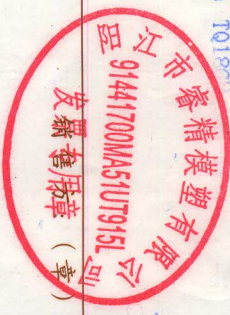 阳江市睿精模塑有限公司
91441700MA51UT915L
发票专用章
(章)